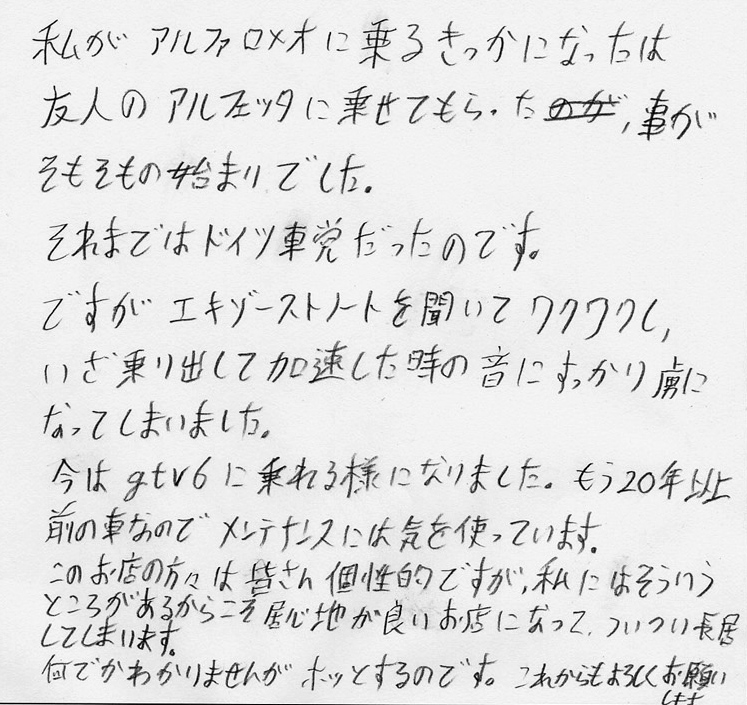 私が アルファロメオに乗るきっかになったは
友人の アルフェッタに乗せてもらった のが、事が
そもそもの始まりでした。
それまではドイツ車党だったのです。
ですが エキゾーストノートを聞いて ワクワクし、
いざ乗り出して加速した時の音にすっかり虜に
なってしまいました。
今は gtv6 に乗れる様になりました。もう20年以上
前の車なので メンテナンスには気を使っています。
このお店の方々は皆さん個性的ですが、私にはそういう
ところがあるからこそ居心地が良いお店になって、ついつい長居
してしまいます。
何でかわかりませんが ホッとするのです。これからもよろしくお願い
します